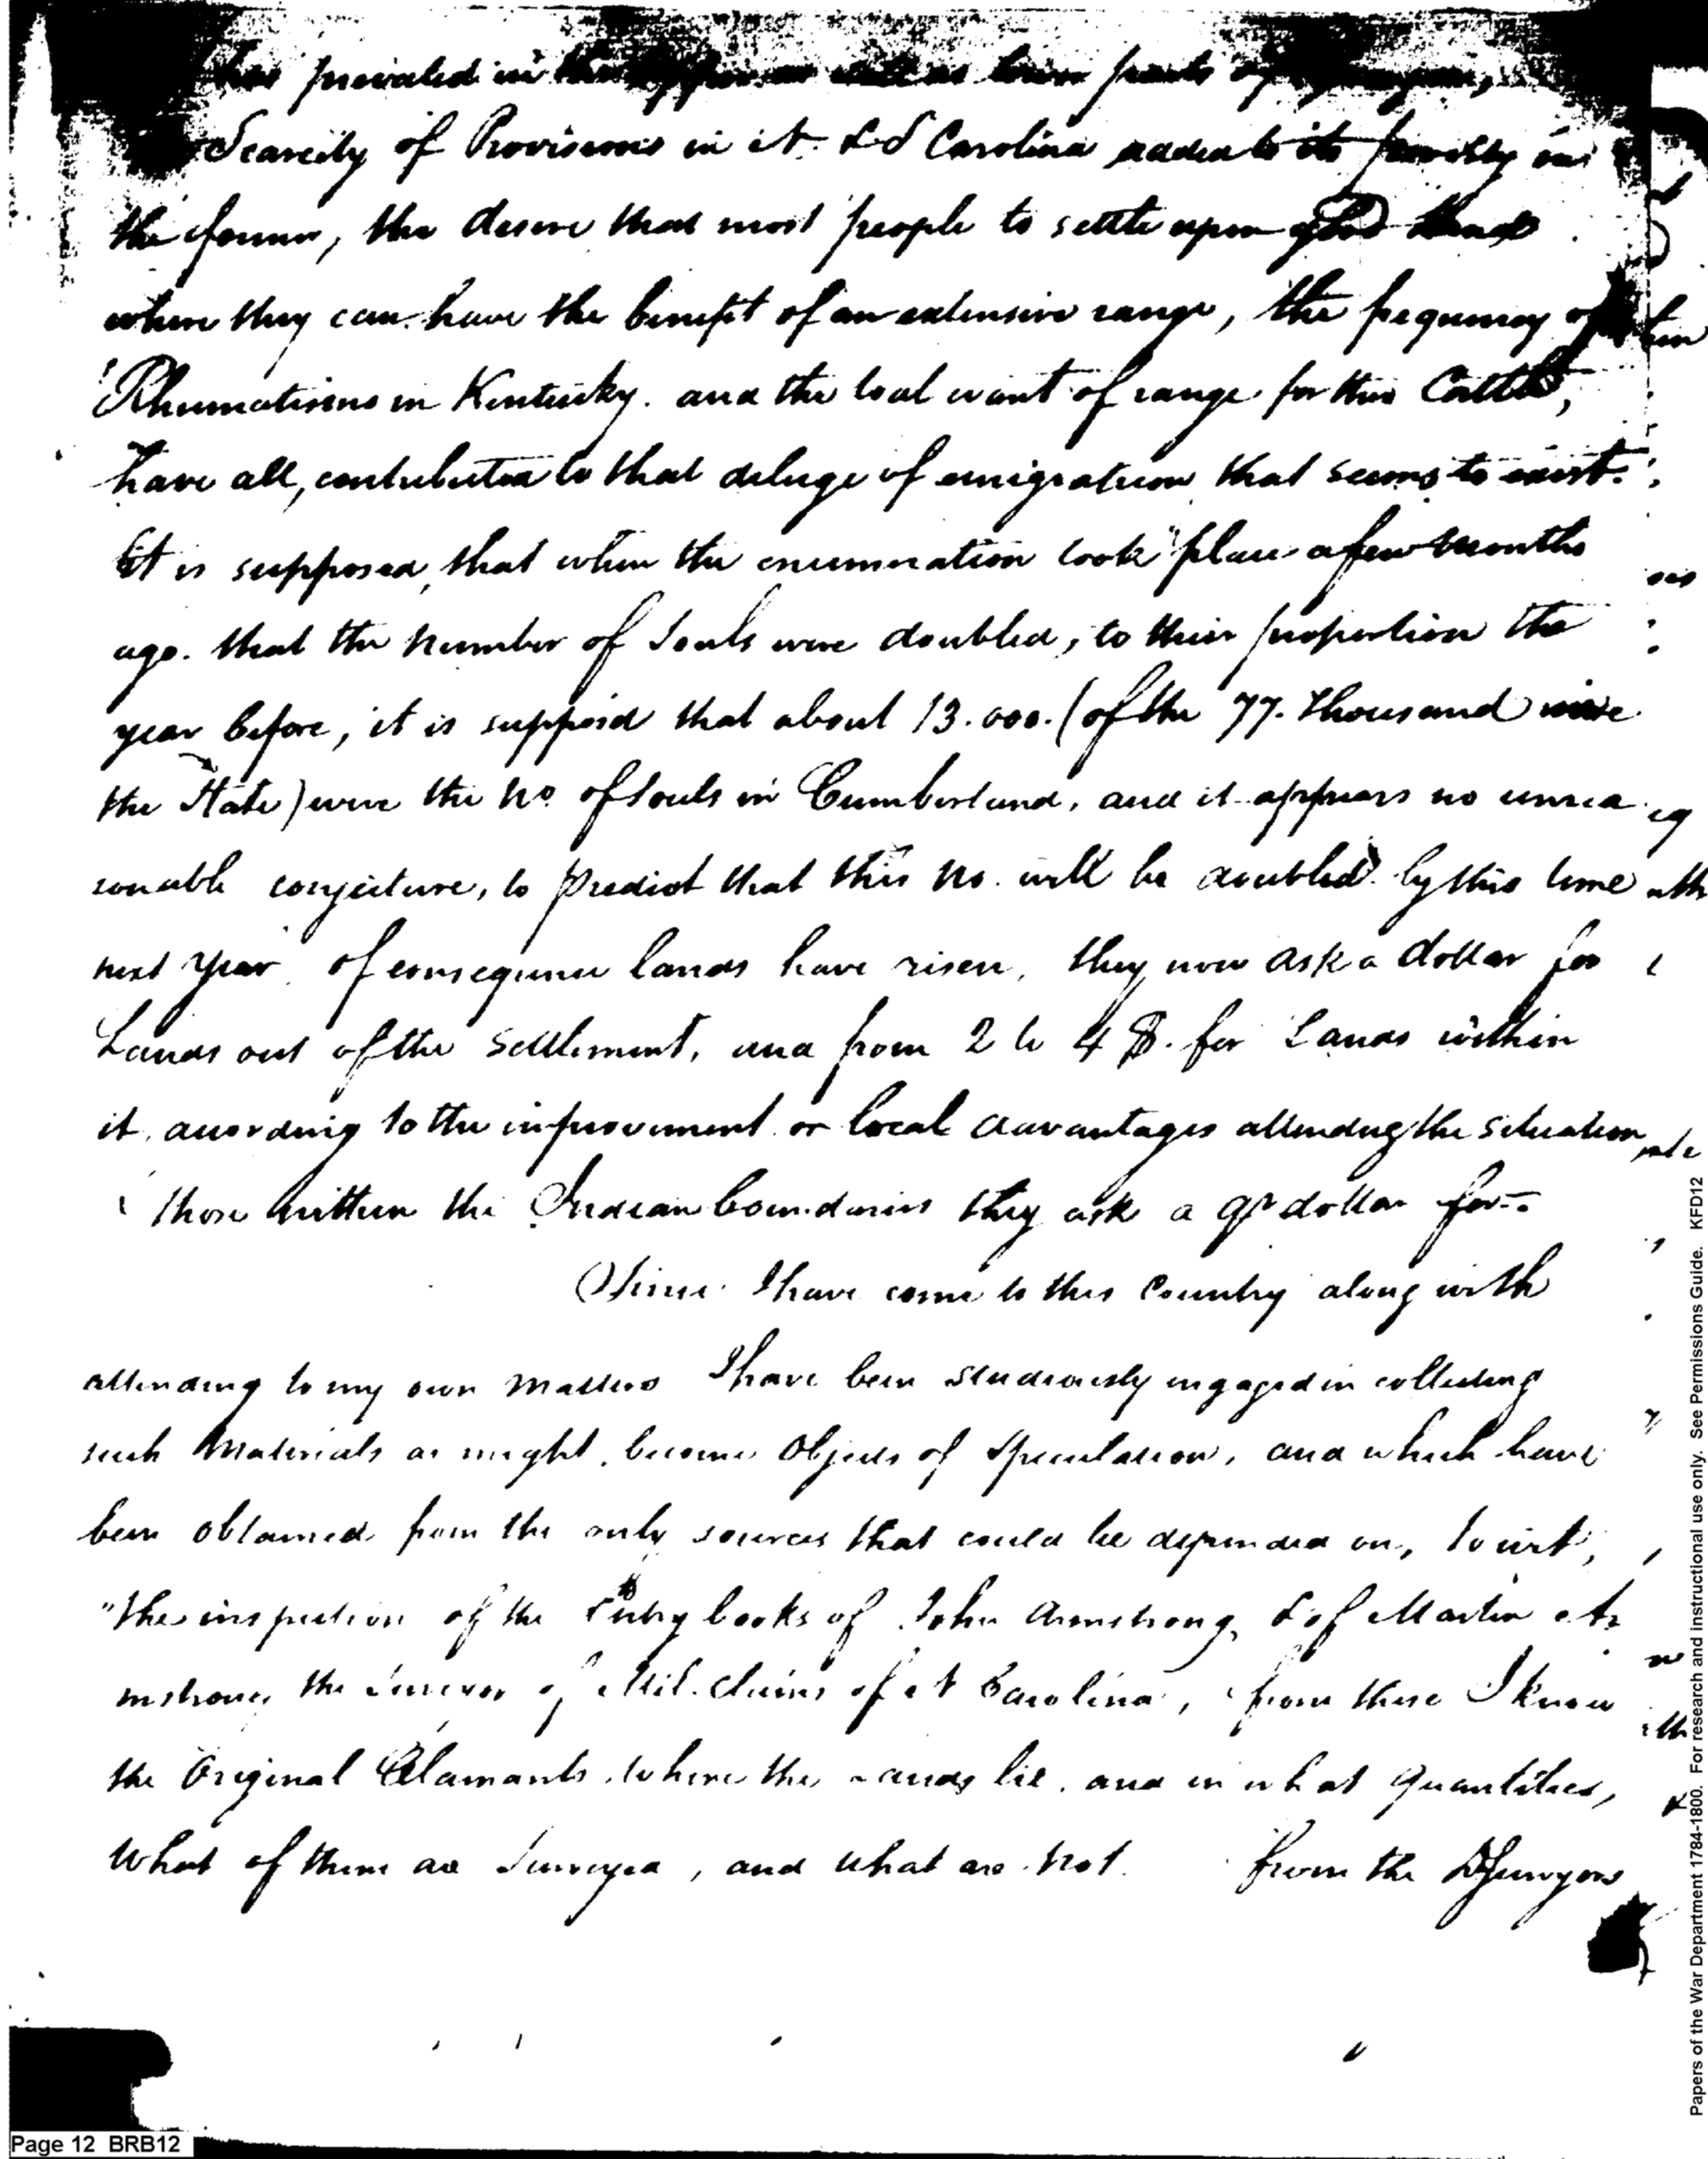 has prevailed in the upper as well as lower parts of
Scarcity of Provisions in N. & S Carolina added to its in
the former, the desire that most people to settle upon good Land
where they can have the benefit of an extensive range, the frequency of
Rhumatisms in Kentucky. and the local want of range for their Cattle,
have all, contributed to that deluge of emigration that seems to exist.
It is supposed, that when the enumeration took place a few months
ago. that the number of Souls were doubled, to their proportion the
year before, it is supposed that about 13.000. (of the 77. Thousand
the State) were the No. of Souls in Cumberland, and it appears no unrea
sonable conjecture, to predict that this No. will be doubled by this time
next year. of consequence lands have risen, they now ask a dollar for
Lands out of the Settlement, and from 2 to 4 $. for Lands within
it, according to the improvement or local advantages attending the situation
those within the Indian boundaries they ask a qr dollar for.
Since I have come to this Country along with
attending to my own matters I have been studiously engaged in collecting
such Materials as might become Objects of Speculation, and which have
been obtained from the only sources that could be depended on, to wit,
"the inspection of the Entry books of John Armstrong, & of Martin Ar
mstrong the Surveyor of Mil. Claims of N Carolina, from these I know
the Original Claimants, where the Lands lie, and in what Quantities,
What of them are Surveyed, and what are not. from the DSurveyors
Page 12 BRB12
Papers of the War Department 1784-1800. For research and instructional use only. See Permissions Guide. KFD12